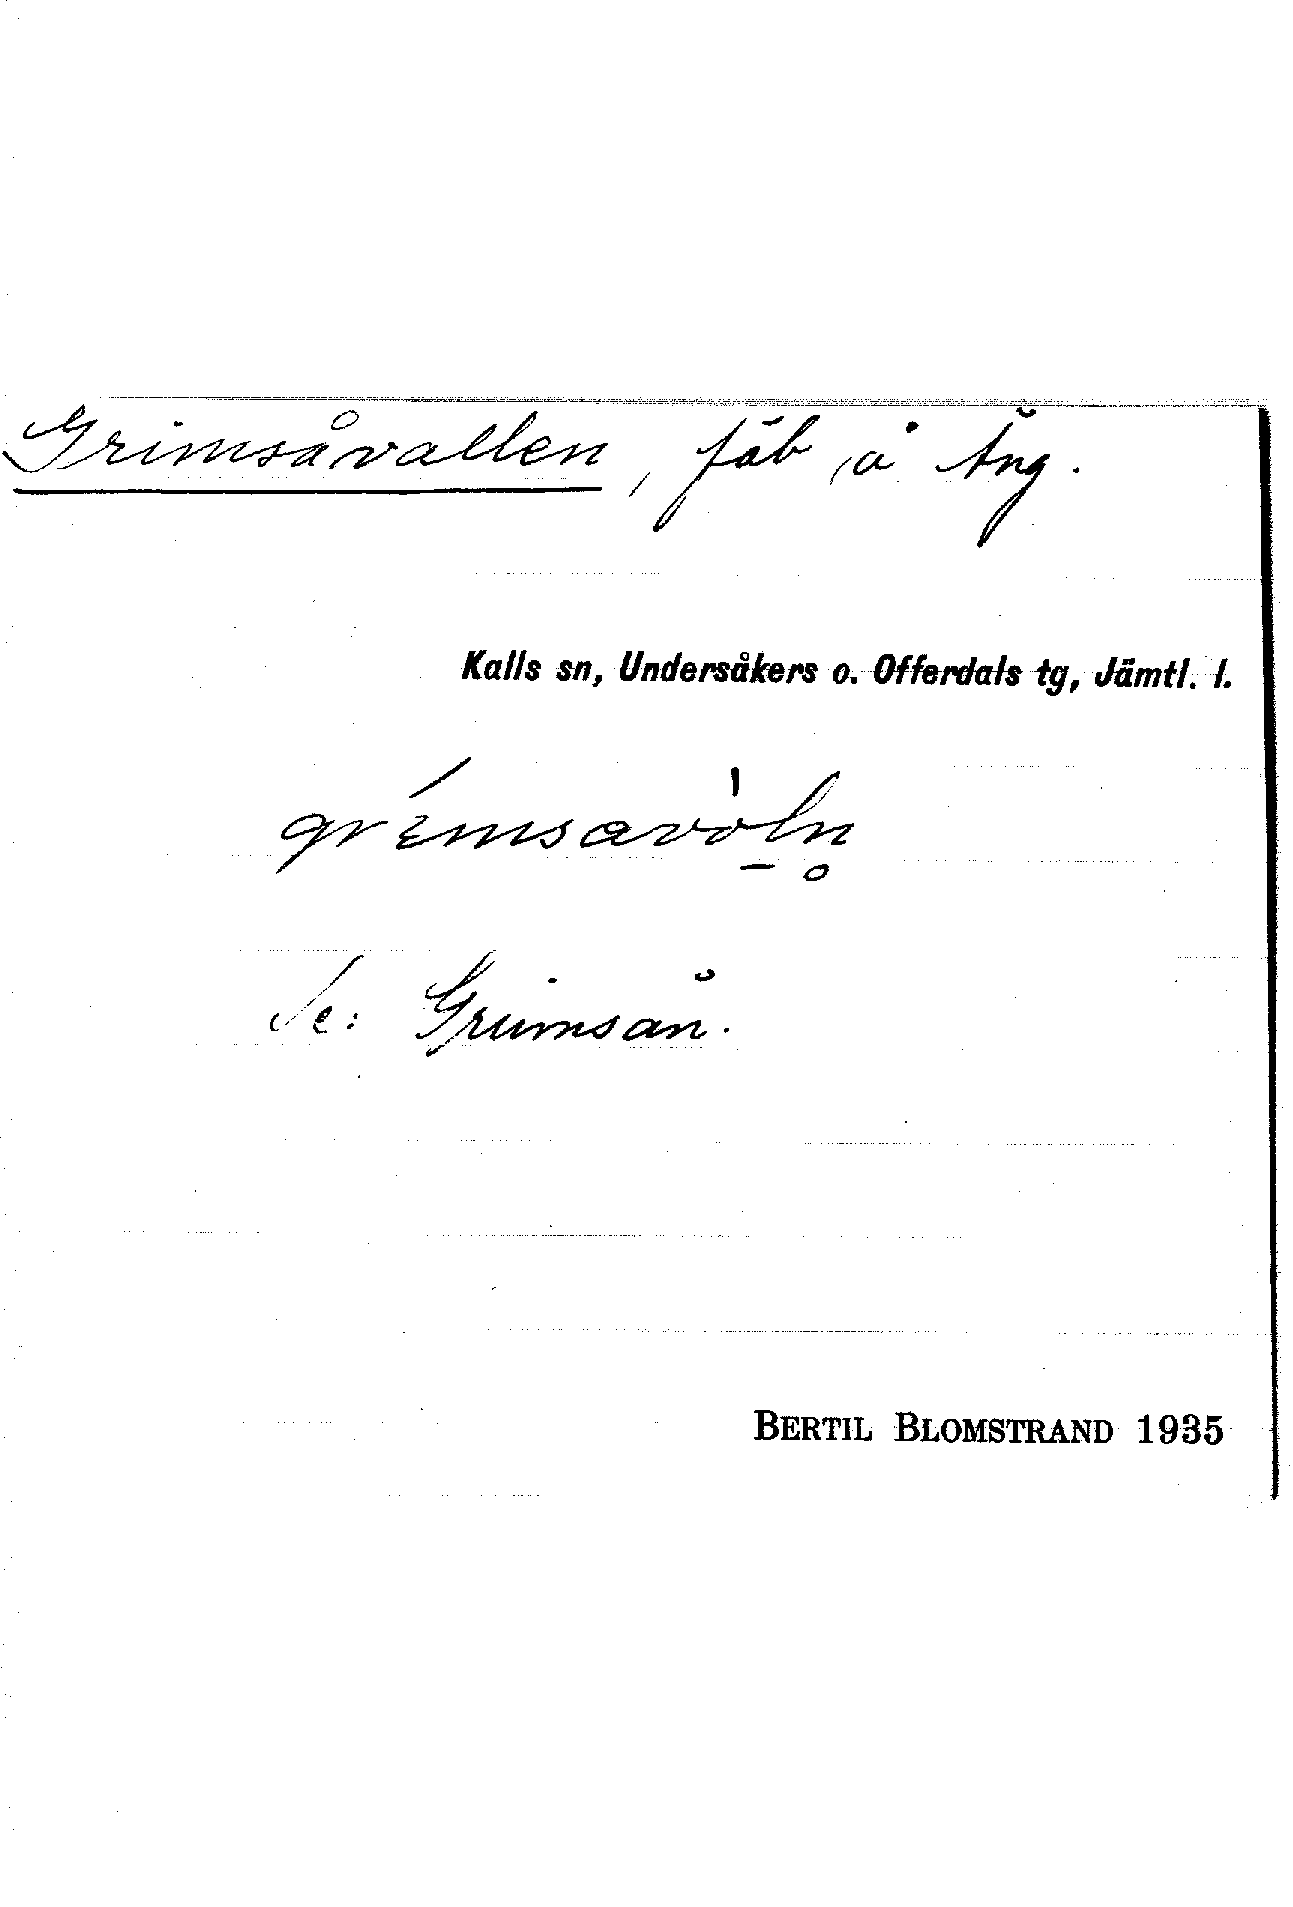 Grimsåvallen, fäb å Äng.
Kalls sn, Undersåkers o. Offerdals tg, Jämtl. l.
Se: Grimsån.
BERTIL BLOMSTRAND 1935